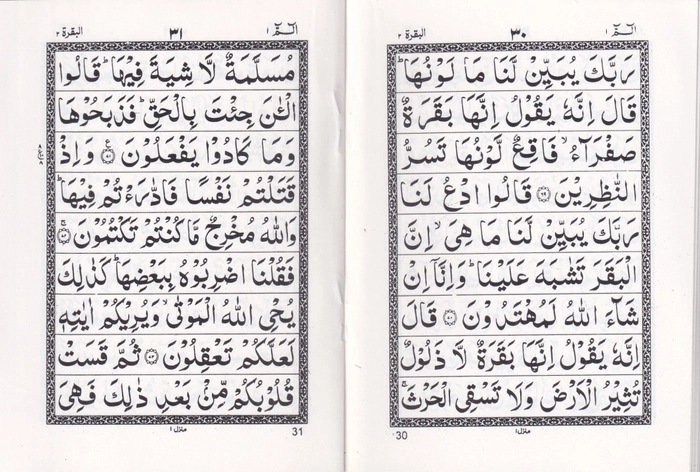 الٓمّٓ ١
٣٠
البقرة ٢
رَبَّكَ يُبَيِّنْ لَّنَا مَا لَوْنُهَا ؕ
قَالَ اِنَّهٗ يَقُوْلُ اِنَّهَا بَقَرَةٌ
صَفْرَآءُ ۙ فَاقِعٌ لَّوْنُهَا تَسُرُّ
النّٰظِرِيْنَ قَالُوا ادْعُ لَنَا
رَبَّكَ يُبَيِّنْ لَّنَا مَا هِيَ ۙ اِنَّ
الْبَقَرَ تَشٰبَهَ عَلَيْنَا ؕ وَاِنَّاۤ اِنْ
شَآءَ اللّٰهُ لَمُهْتَدُوْنَ قَالَ
اِنَّهٗ يَقُوْلُ اِنَّهَا بَقَرَةٌ لَّا ذَلُوْلٌ
تُثِيْرُ الْاَرْضَ وَلَا تَسْقِى الْحَرْثَ ۚ
منزل ١
30
الٓمّٓ ١
٣١
البقرة ٢
مُسَلَّمَةٌ لَّا شِيَةَ فِيْهَا ؕ قَالُوا
الْـٰٔنَ جِئْتَ بِالْحَقِّ ؕ فَذَبَحُوْهَا
وَمَا كَادُوْا يَفْعَلُوْنَ وَاِذْ
قَتَلْتُمْ نَفْسًا فَادّٰرَءْتُمْ فِيْهَا ؕ
وَاللّٰهُ مُخْرِجٌ مَّا كُنْتُمْ تَكْتُمُوْنَ
فَقُلْنَا اضْرِبُوْهُ بِبَعْضِهَا ؕ كَذٰلِكَ
يُحْىِ اللّٰهُ الْمَوْتٰى ۙ وَيُرِيْكُمْ اٰيٰتِهٖ
لَعَلَّكُمْ تَعْقِلُوْنَ ثُمَّ قَسَتْ
قُلُوْبُكُمْ مِّنْۢ بَعْدِ ذٰلِكَ فَهِىَ
منزل ١
31